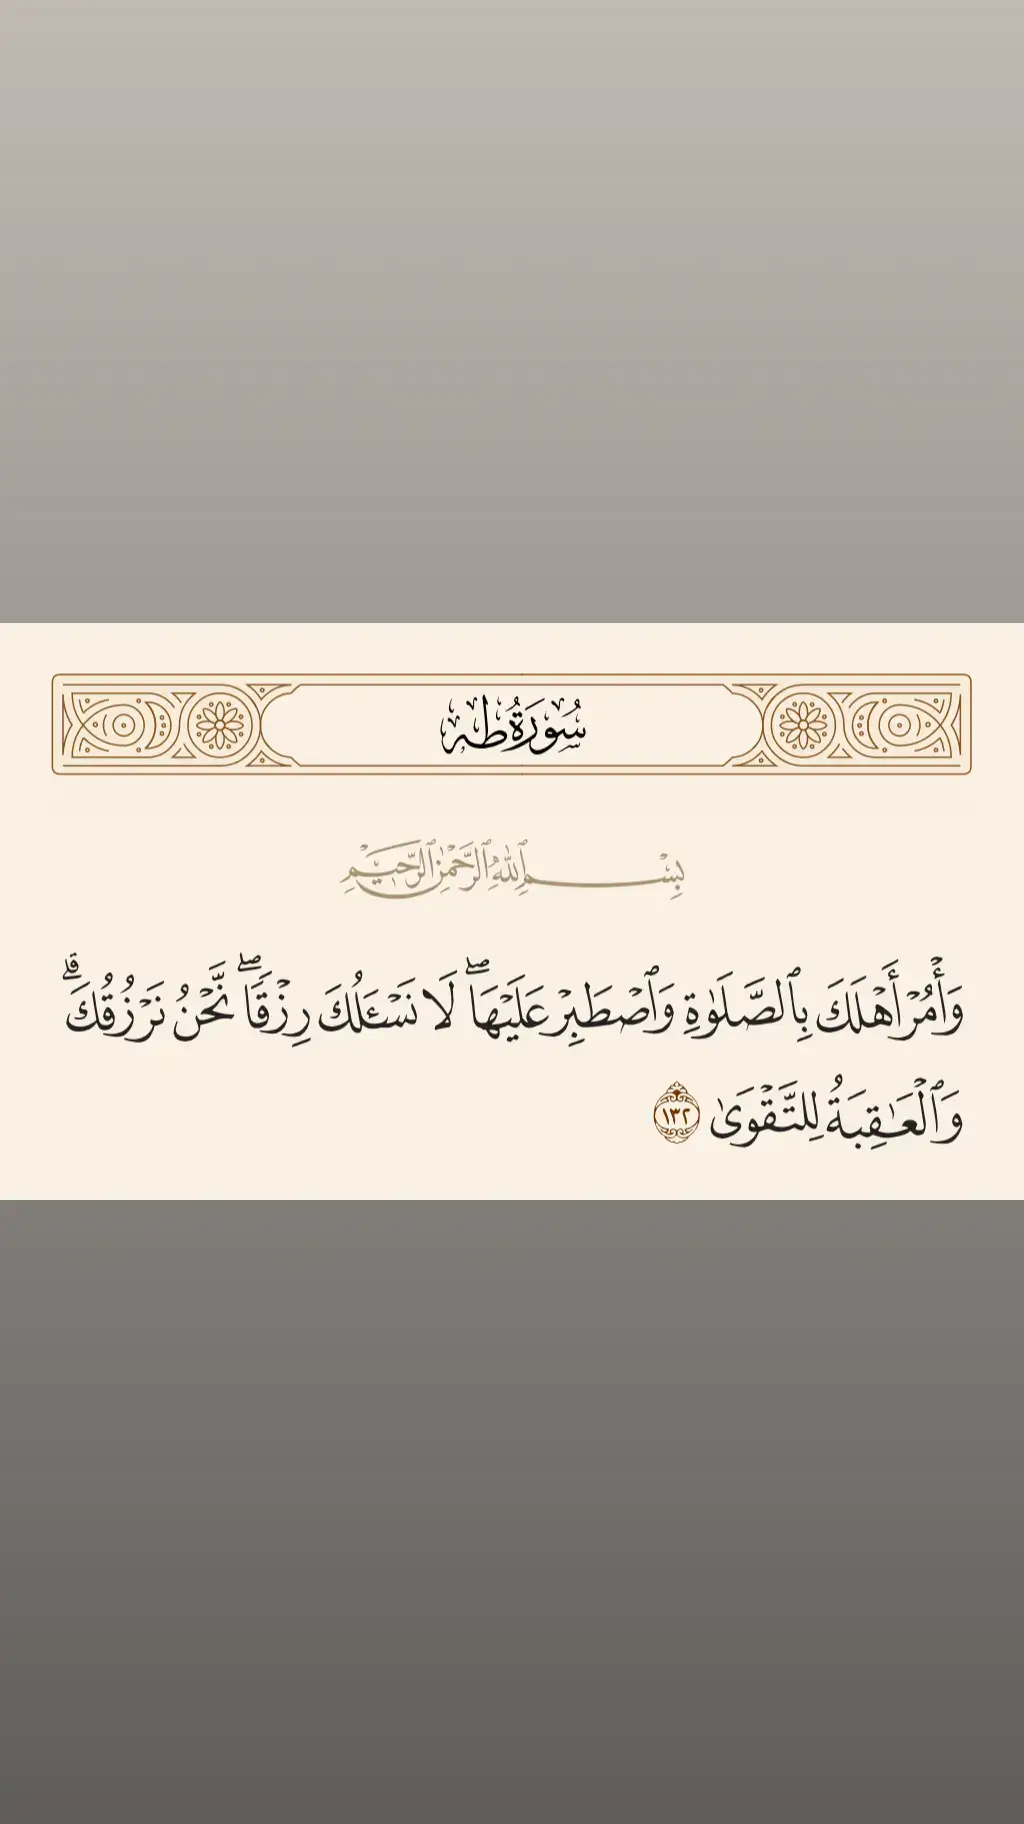 سُورَةُ طه
بِسْمِ ٱللَّهِ ٱلرَّحْمَٰنِ ٱلرَّحِيمِ
وَأْمُرْ أَهْلَكَ بِٱلصَّلَوٰةِ وَٱصْطَبِرْ عَلَيْهَا ۖ لَا نَسْـَٔلُكَ رِزْقًا ۖ نَّحْنُ نَرْزُقُكَ ۗ
وَٱلْعَـٰقِبَةُ لِلتَّقْوَىٰ ١٣٢